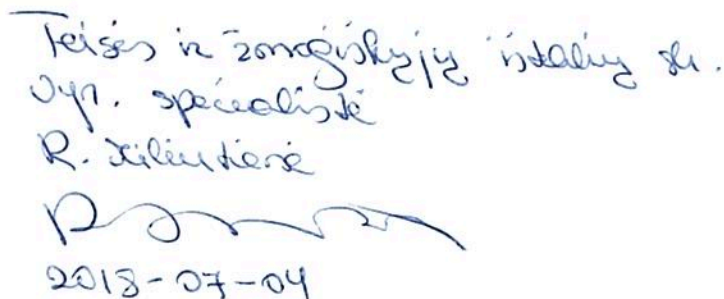 Teisės ir žmogiškųjų išteklių sk.
Vyr. specialistė
R.
2018-07-04